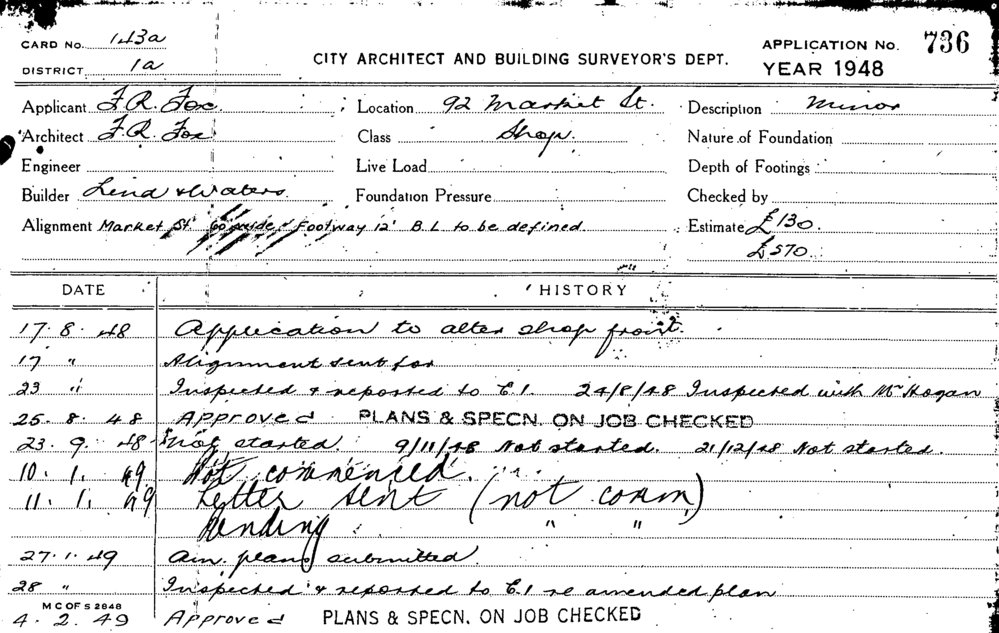 CARD No. 143a
DISTRICT 1a
CITY ARCHITECT AND BUILDING SURVEYOR'S DEPT.
APPLICATION No. 736
YEAR 1948
Applicant F.R. Fox Location 92 Market St. Description Minor
Architect F.R. Fox Class Shop Nature of Foundation
Engineer Live Load Depth of Footings
Builder & Waters Foundation Pressure Checked by
Alignment Market St. Footway 12' B.L. to be defined Estimate £130.
£570.
DATE HISTORY
17.8.48 Application to alter shop front.
17 " Alignment sent for
23 " Inspected & reported to C.I. 24/8/48 Inspected with Mr Hogan
25.8.48 Approved PLANS & SPECN. ON JOB CHECKED
23.9.48 Not started. 9/11/48 Not started. 21/12/48 Not started.
10.1.49 Not commenced.
11.1.49 Letter sent (not comm.)
Pending " "
27.1.49 Am. plans submitted
28 " Inspected & reported to C.I re amended plan
M C OF S 2848
4.2.49 Approved PLANS & SPECN. ON JOB CHECKED